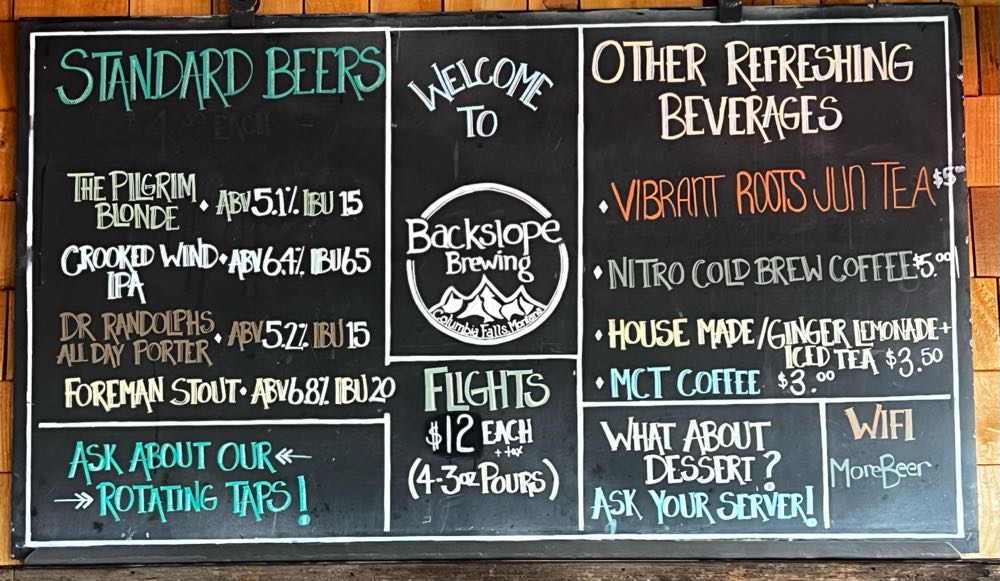 STANDARD BEERS
EACH
THE PILGRIM
BLONDE • ABV 5.1% IBU 15
CROOKED WIND • ABV 6.4% IBU 65
IPA
DR RANDOLPHS
ALL DAY PORTER • ABV 5.2% IBU 15
FOREMAN STOUT • ABV 6.8% IBU 20
ASK ABOUT OUR
ROTATING TAPS!
WELCOME
TO
Backslope
Brewing
Columbia Falls, Montana
FLIGHTS
$12 EACH
+ tax
(4-3oz POURS)
OTHER REFRESHING
BEVERAGES
• VIBRANT ROOTS JUN TEA $5.00
• NITRO COLD BREW COFFEE $5.00
• HOUSE MADE/GINGER LEMONADE +
ICED TEA $3.50
• MCT COFFEE $3.00
WHAT ABOUT
DESSERT?
ASK YOUR SERVER!
WIFI
MoreBeer